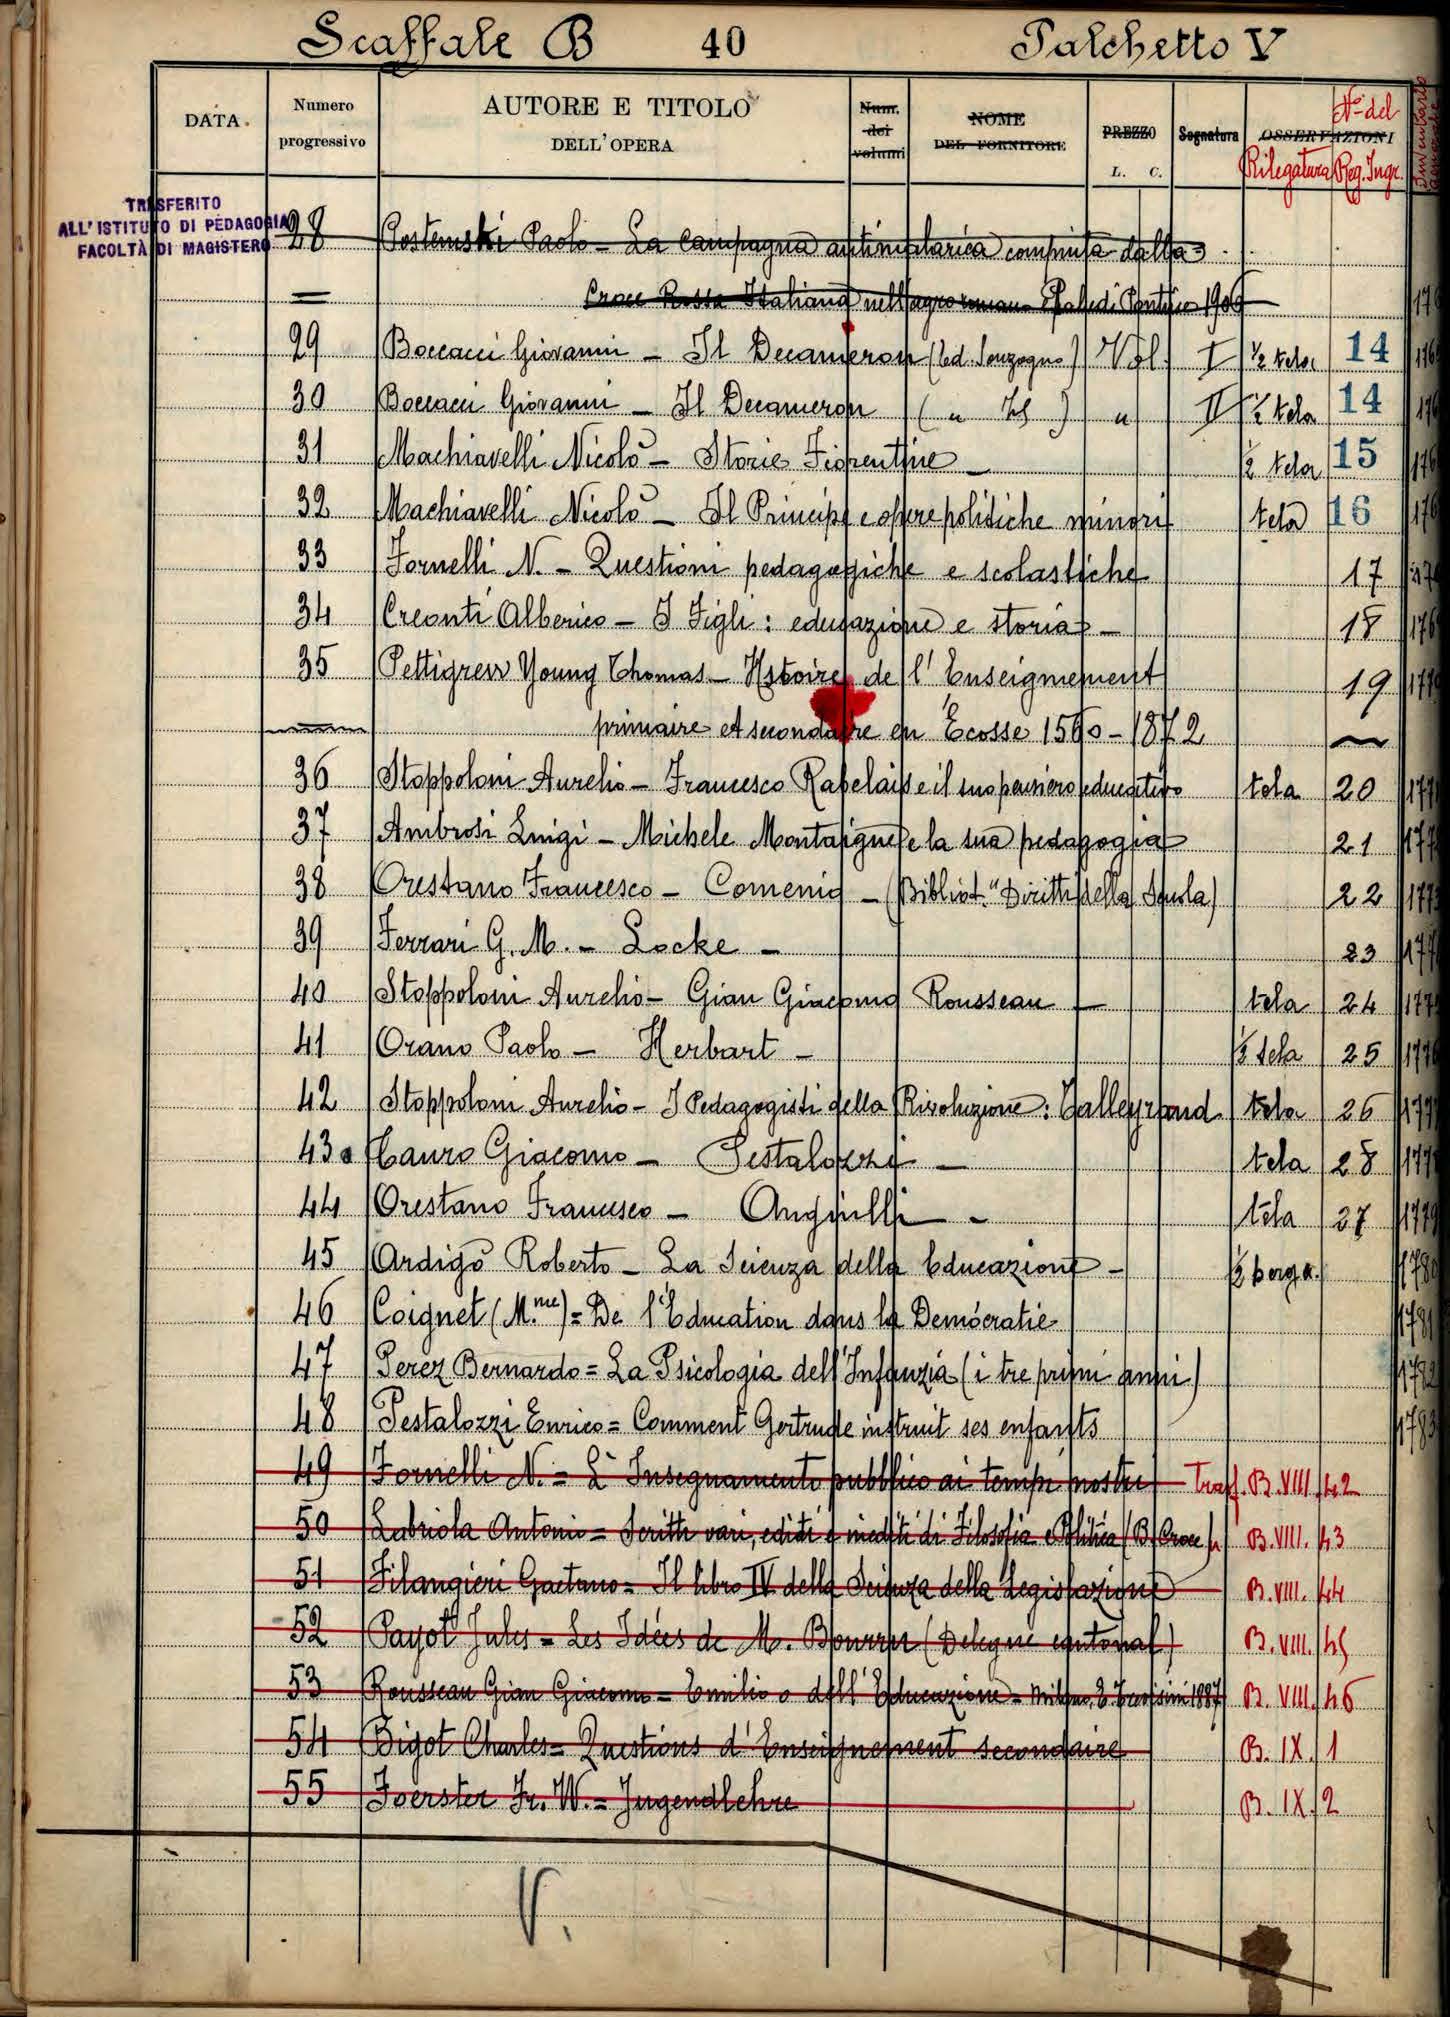 Scaffale B 40 Palchetto V
DATA. Numero progressivo AUTORE E TITOLO DELL'OPERA Num. dei volumi NOME DEL FORNITORE PREZZO L. C. Segnatura OSSERVAZIONI Rilegatura N.º del Reg. Ingr. Inventario generale
TRASFERITO
ALL'ISTITUTO DI PEDAGOGIA
FACOLTÀ DI MAGISTERO
28 Postemski Paolo - La Campagna antimalarica compiuta dalla
= Croce Rossa Italiana nell'agro romano e Paludi Pontine 1906
29 Boccacci Giovanni - Il Decameron (Ed. Sonzogno) Vol. I ½ tela 14
30 Boccacci Giovanni - Il Decameron ( " ) " II ½ tela 14
31 Machiavelli Nicolò - Storie Fiorentine - ½ tela 15
32 Machiavelli Nicolò - Il Principe e opere politiche minori tela 16
33 Fornelli N. - Questioni pedagogiche e scolastiche 17
34 Creonti Alberico - I Figli: educazione e storia - 18
35 Pettigrew Young Thomas - Hstoire de l'Enseignement 19
primaire et secondaire en Écosse 1560 - 1872
36 Stoppoloni Aurelio - Francesco Rabelais e il suo pensiero educativo tela 20
37 Ambrosi Luigi - Michele Montaigne e la sua pedagogia 21
38 Orestano Francesco - Comenio - (Bibliot. "Diritti della Scuola) 22
39 Ferrari G. M. - Locke - 23
40 Stoppoloni Aurelio - Gian Giacomo Rousseau - tela 24
41 Orano Paolo - Herbart - ½ tela 25
42 Stoppoloni Aurelio - I Pedagogisti della Rivoluzione: Talleyrand tela 26
43 Tauro Giacomo - Pestalozzi - tela 28
44 Orestano Francesco - Angiulli - tela 27 1779
45 Ardigò Roberto - La Scienza della Educazione - ½ perga. 1780
46 Coignet (M.me) = De l'Éducation dans la Démocratie 1781
47 Perez Bernardo = La Psicologia dell'Infanzia (i tre primi anni) 1782
48 Pestalozzi Enrico = Comment Gertrude instruit ses enfants 1783
49 Fornelli N. = L'Insegnamento pubblico ai tempi nostri Trasf. B. VIII. 42
50 Labriola Antonio = Scritti vari, editi e inediti di Filosofia e Politica (B. Croce) B. VIII. 43
51 Filangieri Gaetano = Il libro IV della Scienza della Legislazione B. VIII. 44
52 Payot Jules = Les Idées de M. Bourru (Délégué cantonal) B. VIII. 45
53 Rousseau Gian Giacomo = Emilio o dell'Educazione = Milano, E. Trevisini 1887 B. VIII. 46
54 Bigot Charles = Questions d'Enseignement secondaire B. IX. 1
55 Foerster Fr. W. = Jugendlehre B. IX. 2
V.